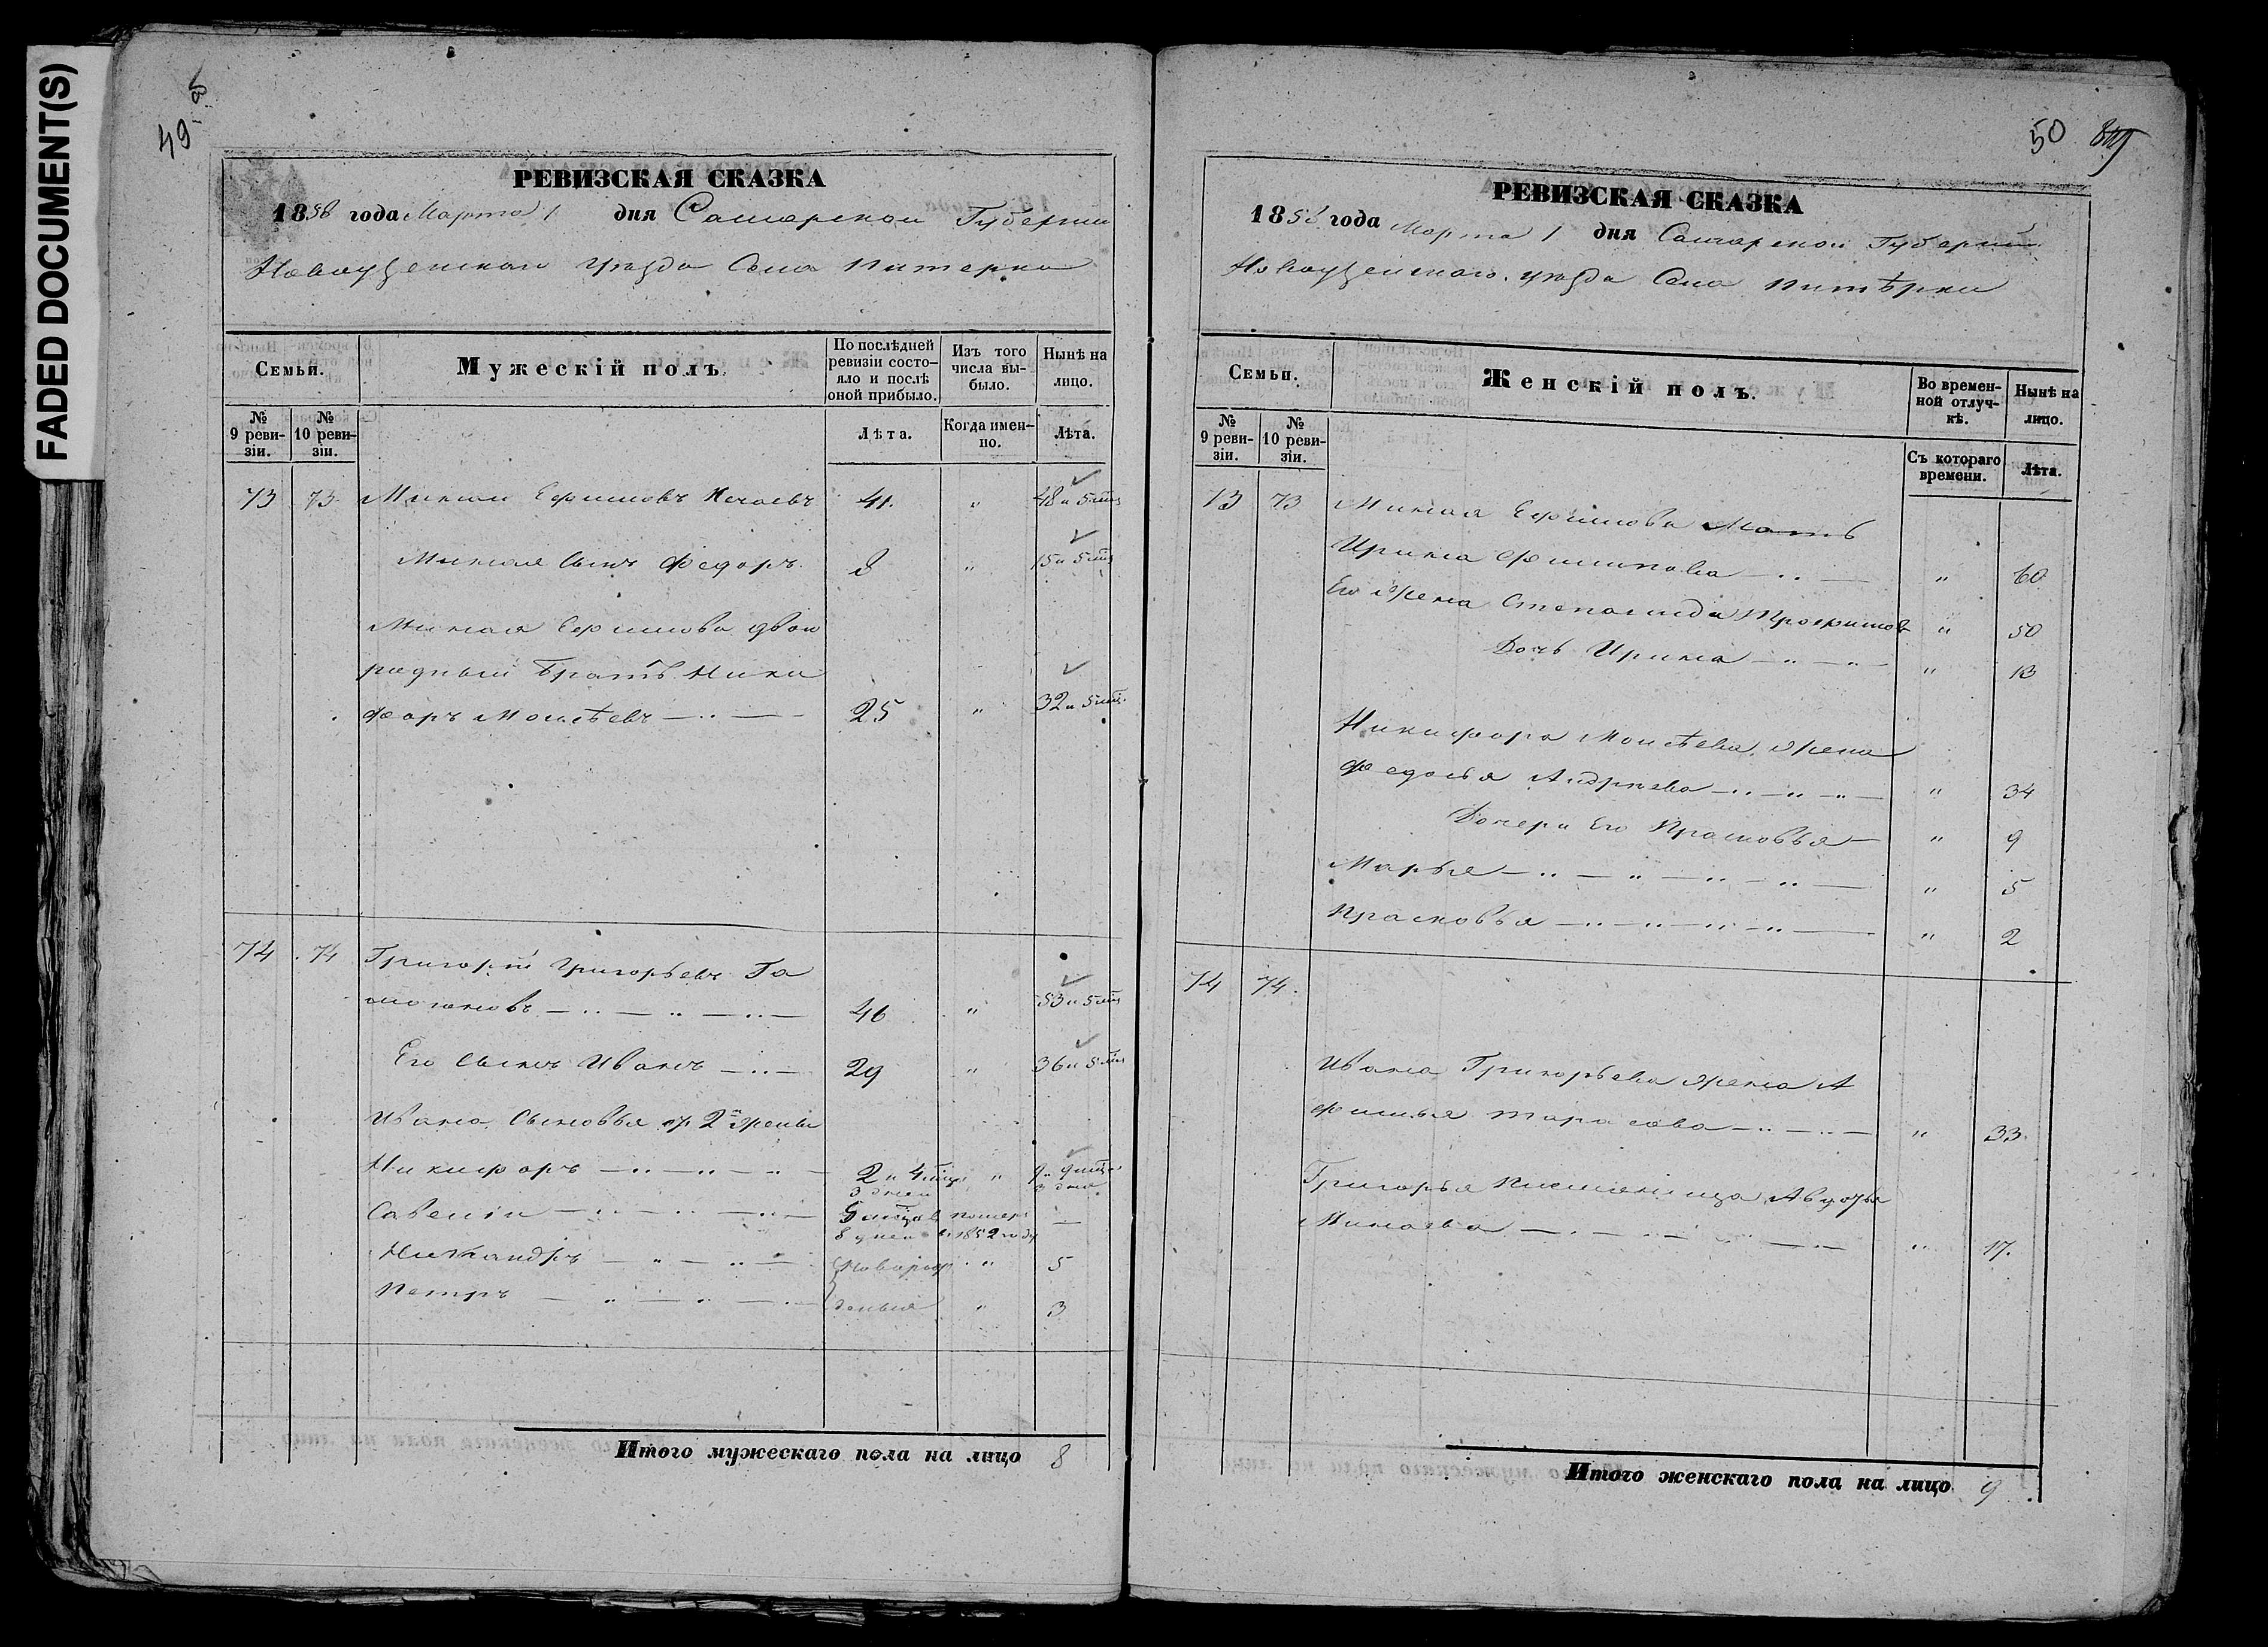 FADED DOCUMENT(S)
49
РЕВИЗСКАЯ СКАЗКА
1858 года Марта 1 дня Самарской Губернии
Новоузенскаго уезда Села Питерки
Семьи.
Мужескій полъ.
По послѣдней ревизіи состояло и послѣ оной прибыло.
Изъ того числа выбыло.
Нынѣ на лицо.
№ 9 ревизіи.
№ 10 ревизіи.
Лѣта.
Когда именно.
Лѣта.
73 73 Минай Ефимовъ Нечаевъ 41. " 48 и 5 мцъ
Миная Сынъ Федоръ 8 " 15 и 5 мцъ
Миная Ефимова двою
родный Братъ Ники
форъ Моисѣевъ 25 " 32 и 5 мцъ
74 74 Григорій Григорьевъ Га
46 " 53 и 5 мцъ
Его Сынъ Иванъ 29 " 36 и 5 мцъ
Ивана Сыновья от 2й жены
Никифоръ 2 и 4 мца 3 дней " 9 и 9 мцъ 3 дня
Савелій 5 мцов 8 дней помер в 1852 году —
Никандръ Новорож " 5
Петръ денныя " 3
Итого мужескаго пола на лицо 8
50
РЕВИЗСКАЯ СКАЗКА
1858 года Марта 1 дня Самарской Губерніи
Новоузенскаго уезда Села Питѣрки
Семьи.
Женскій полъ.
Во временной отлучкѣ.
Нынѣ на лицо.
№ 9 ревизіи.
№ 10 ревизіи.
Съ котораго времени.
Лѣта.
73 73 Миная Ефимова Мать
Ирина Филипова " 60
Его Жена Степанида Трофимов " 50
Дочь Ирина " 13
Никифора Моисѣева Жена
Федосья Андреева " 34
Дочери Его Прасковья " 9
Марья " 5
Прасковья " 2
74 74.
Ивана Григорьева жена А
фимья Тарасова " 33
Григорья Племянница Авдотья
Минаева " 17.
Итого женскаго пола на лицо 9